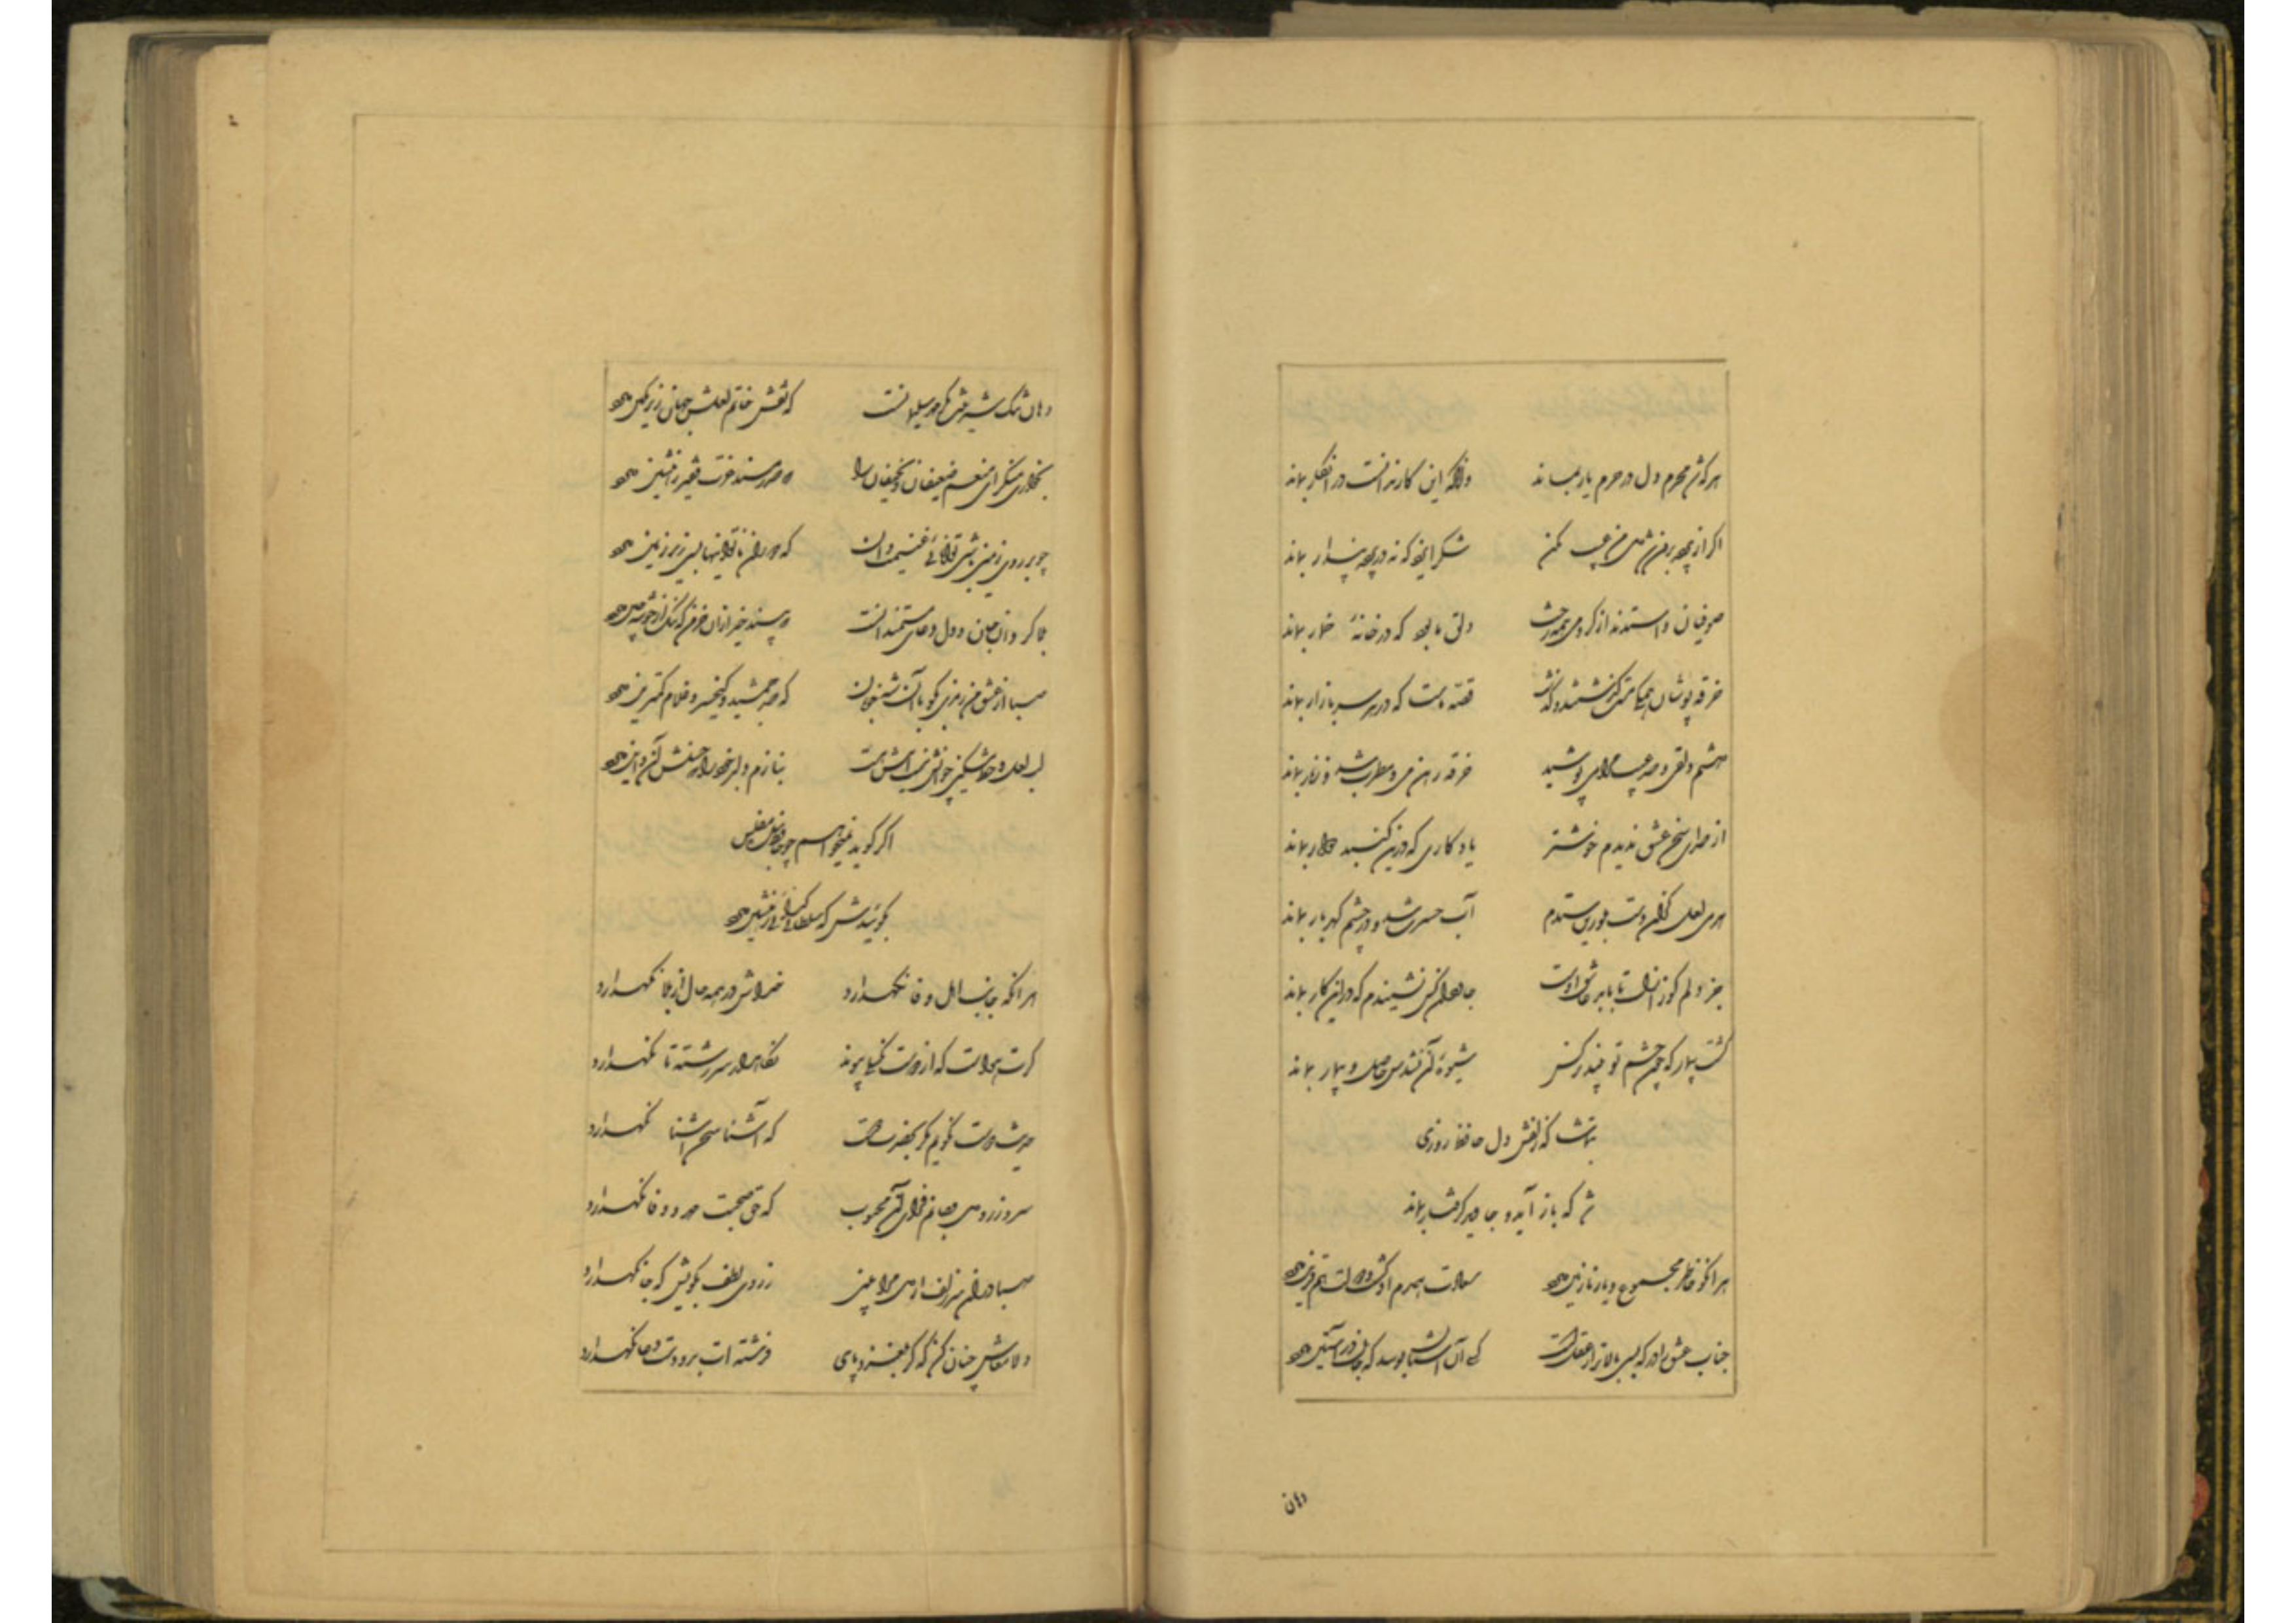 هرکه شد محرم دل در حرم یار بماند وانکه این کار ندانست در انکار بماند
اگر از پرده برون شد دل من عیب مکن شکر ایزد که نه در پرده پندار بماند
صوفیان واستدند از گرو می همه رخت دلق ما بود که در خانهٔ خمار بماند
خرقه پوشان همگی مست گذشتند و گذشت قصه ماست که در هر سر بازار بماند
داشتم دلقی و صد عیب مرا می پوشید خرقه رهن می و مطرب شد و زنار بماند
از صدای سخن عشق ندیدم خوشتر یادگاری که درین گنبد دوار بماند
هر می لعل کزان دست بلورین ستدم آب حسرت شد و در چشم گهربار بماند
جز دلم کو ز ازل تا بابد عاشق اوست جاودان کس نشنیدم که در این کار بماند
گشت بیمار که چون چشم تو گردد نرگس شیوهٔ آن نشدش حاصل و بیمار بماند
بتماشاگه زلفش دل حافظ روزی
شد که باز آید و جاوید گرفتار بماند
هر آنکو خاطر مجموع و یار نازنین دارد سعادت همدم او گشت و دولت همقرین دارد
جناب عشق را درگه بسی بالاتر از عقلست کسی آن آستان بوسد که جان در آستین دارد
دهان
دهان تنگ شیرینش مگر مهر سلیمانست که نقش خاتم لعلش جهان زیر نگین دارد
بخواری منگر ای منعم ضعیفان و نحیفان را که صدر مسند عزت فقیر ره نشین دارد
چو بر روی زمین باشی توانائی غنیمت دان که دوران ناتوانیها بسی زیر زمین دارد
بلاگردان جان و دل دعای مستمندانست که بیند خیر از آن خرمن که ننگ از خوشه چین دارد
صبا از عشق من رمزی بگو با آن شه خوبان که صد جمشید و کیخسرو غلام کمترین دارد
لب لعل و خط مشکین چو آنش نیست اینش هست بنازم دلبر خود را که حسنش آن و این دارد
اگر گوید نمیخواهم چو حافظ عاشق مفلس
بگوئیدش که سلطانی گدائی ره نشین دارد
هر آنکه جانب اهل وفا نگهدارد خداش در همه حال از بلا نگهدارد
گرت هواست که از دوست نگسلد پیوند نگاهدار سر رشته تا نگهدارد
حدیث دوست نگویم مگر بحضرت دوست که آشنا سخن آشنا نگهدارد
سر و زر و دل و جانم فدای آن محبوب که حق صحبت مهر و وفا نگهدارد
صبا در آن سر زلف ار دل مرا بینی ز روی لطف بگویش که جا نگهدارد
دلا معاش چنان کن که گر بلغزد پای فرشته ات بدو دست دعا نگهدارد